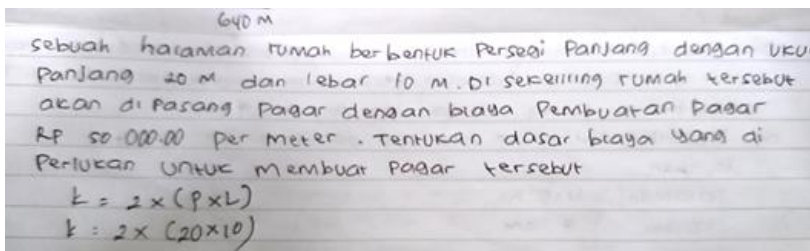 640 M
sebuah halaman rumah berbentuk Persegi Panjang dengan uku
Panjang 20 M dan lebar 10 M. Di sekeliling rumah tersebut
akan di Pasang Pagar dengan biaya Pembuatan Pagar
RP 50.000.00 Per meter. Tentukan dasar biaya yang di
Perlukan untuk membuat Pagar tersebut
k = 2 x (P x L)
k : 2 x (20 x 10)